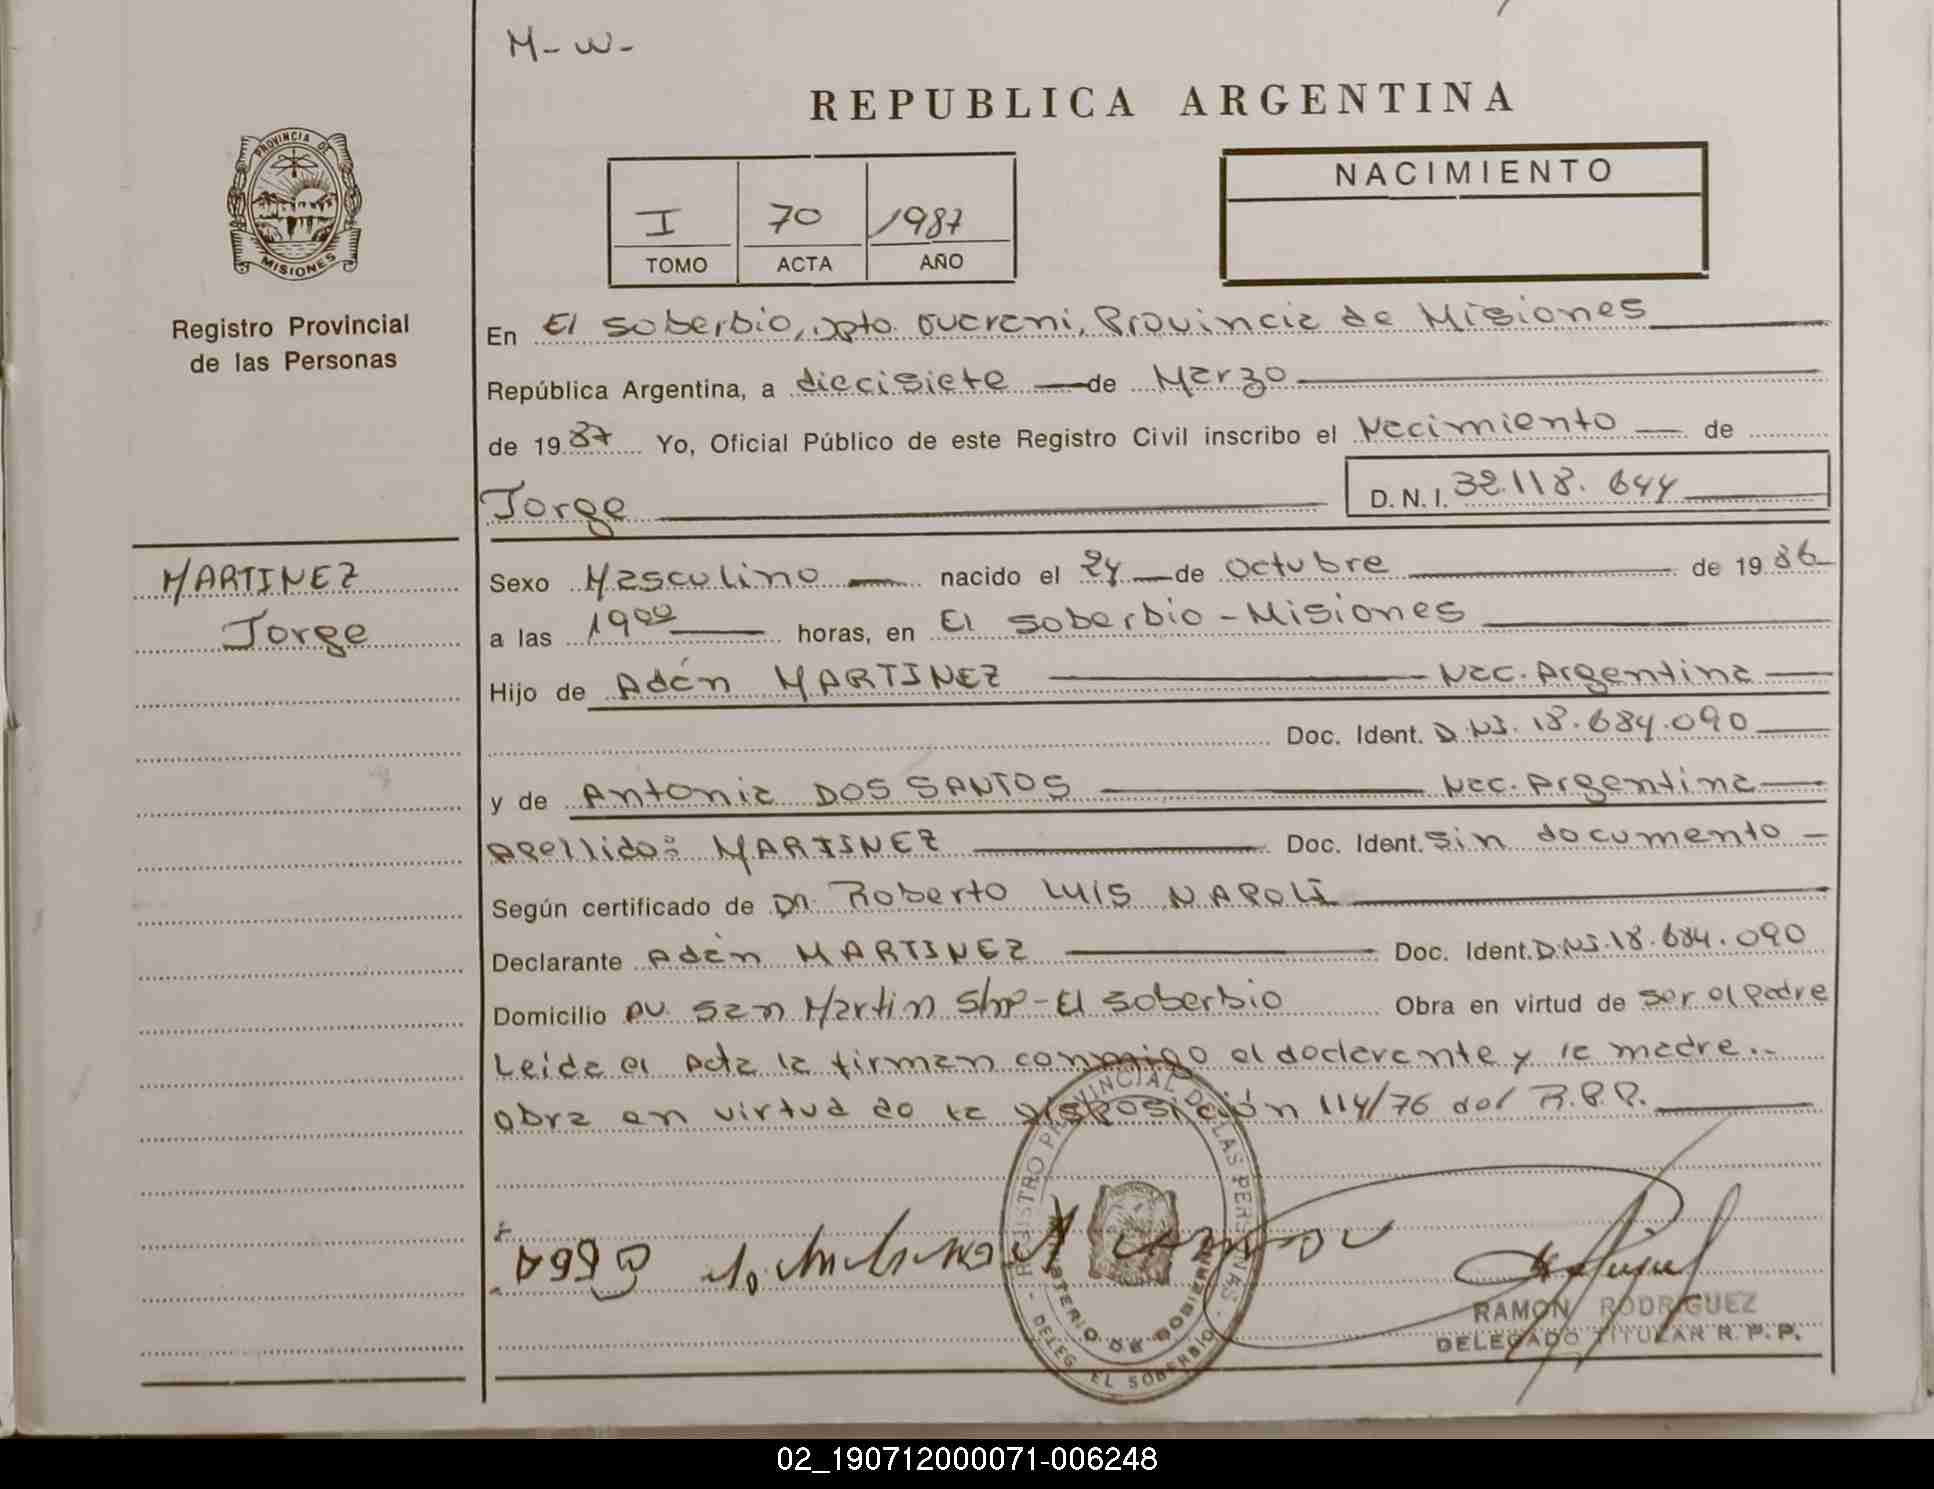 M-W-
REPUBLICA ARGENTINA
PROVINCIA DE
MISIONES
Registro Provincial
de las Personas
I 70 1987
TOMO ACTA AÑO
NACIMIENTO
En El Soberbio, Dpto. Guarani, Provincia de Misiones
República Argentina, a diecisiete de Marzo
de 1987 Yo, Oficial Público de este Registro Civil inscribo el Nacimiento de
Jorge D.N.I. 32.118.644
MARTINEZ
Jorge
Sexo Masculino nacido el 24 de Octubre de 1986
a las 19 00 horas, en El Soberbio - Misiones
Hijo de Adán MARTINEZ Nac. Argentina
Doc. Ident. D.NI. 18.684.090
y de Antonia DOS SANTOS Nac. Argentina
Apellido: MARTINEZ Doc. Ident. Sin documento
Según certificado de Dr. Roberto Luis NAPOLI
Declarante Adán MARTINEZ Doc. Ident. D.NI. 18.684.090
Domicilio Av. San Martin S/nº - El Soberbio Obra en virtud de ser el Padre
Leída el Acta la firman conmigo el declarante y la madre.-
Obra en virtud de la disposición 114/76 del R.P.P.
REGISTRO PROVINCIAL DE LAS PERSONAS
MINISTERIO DE GOBIERNO
DELEG. EL SOBERBIO
RAMON RODRIGUEZ
DELEGADO TITULAR R.P.P.
02_190712000071-006248